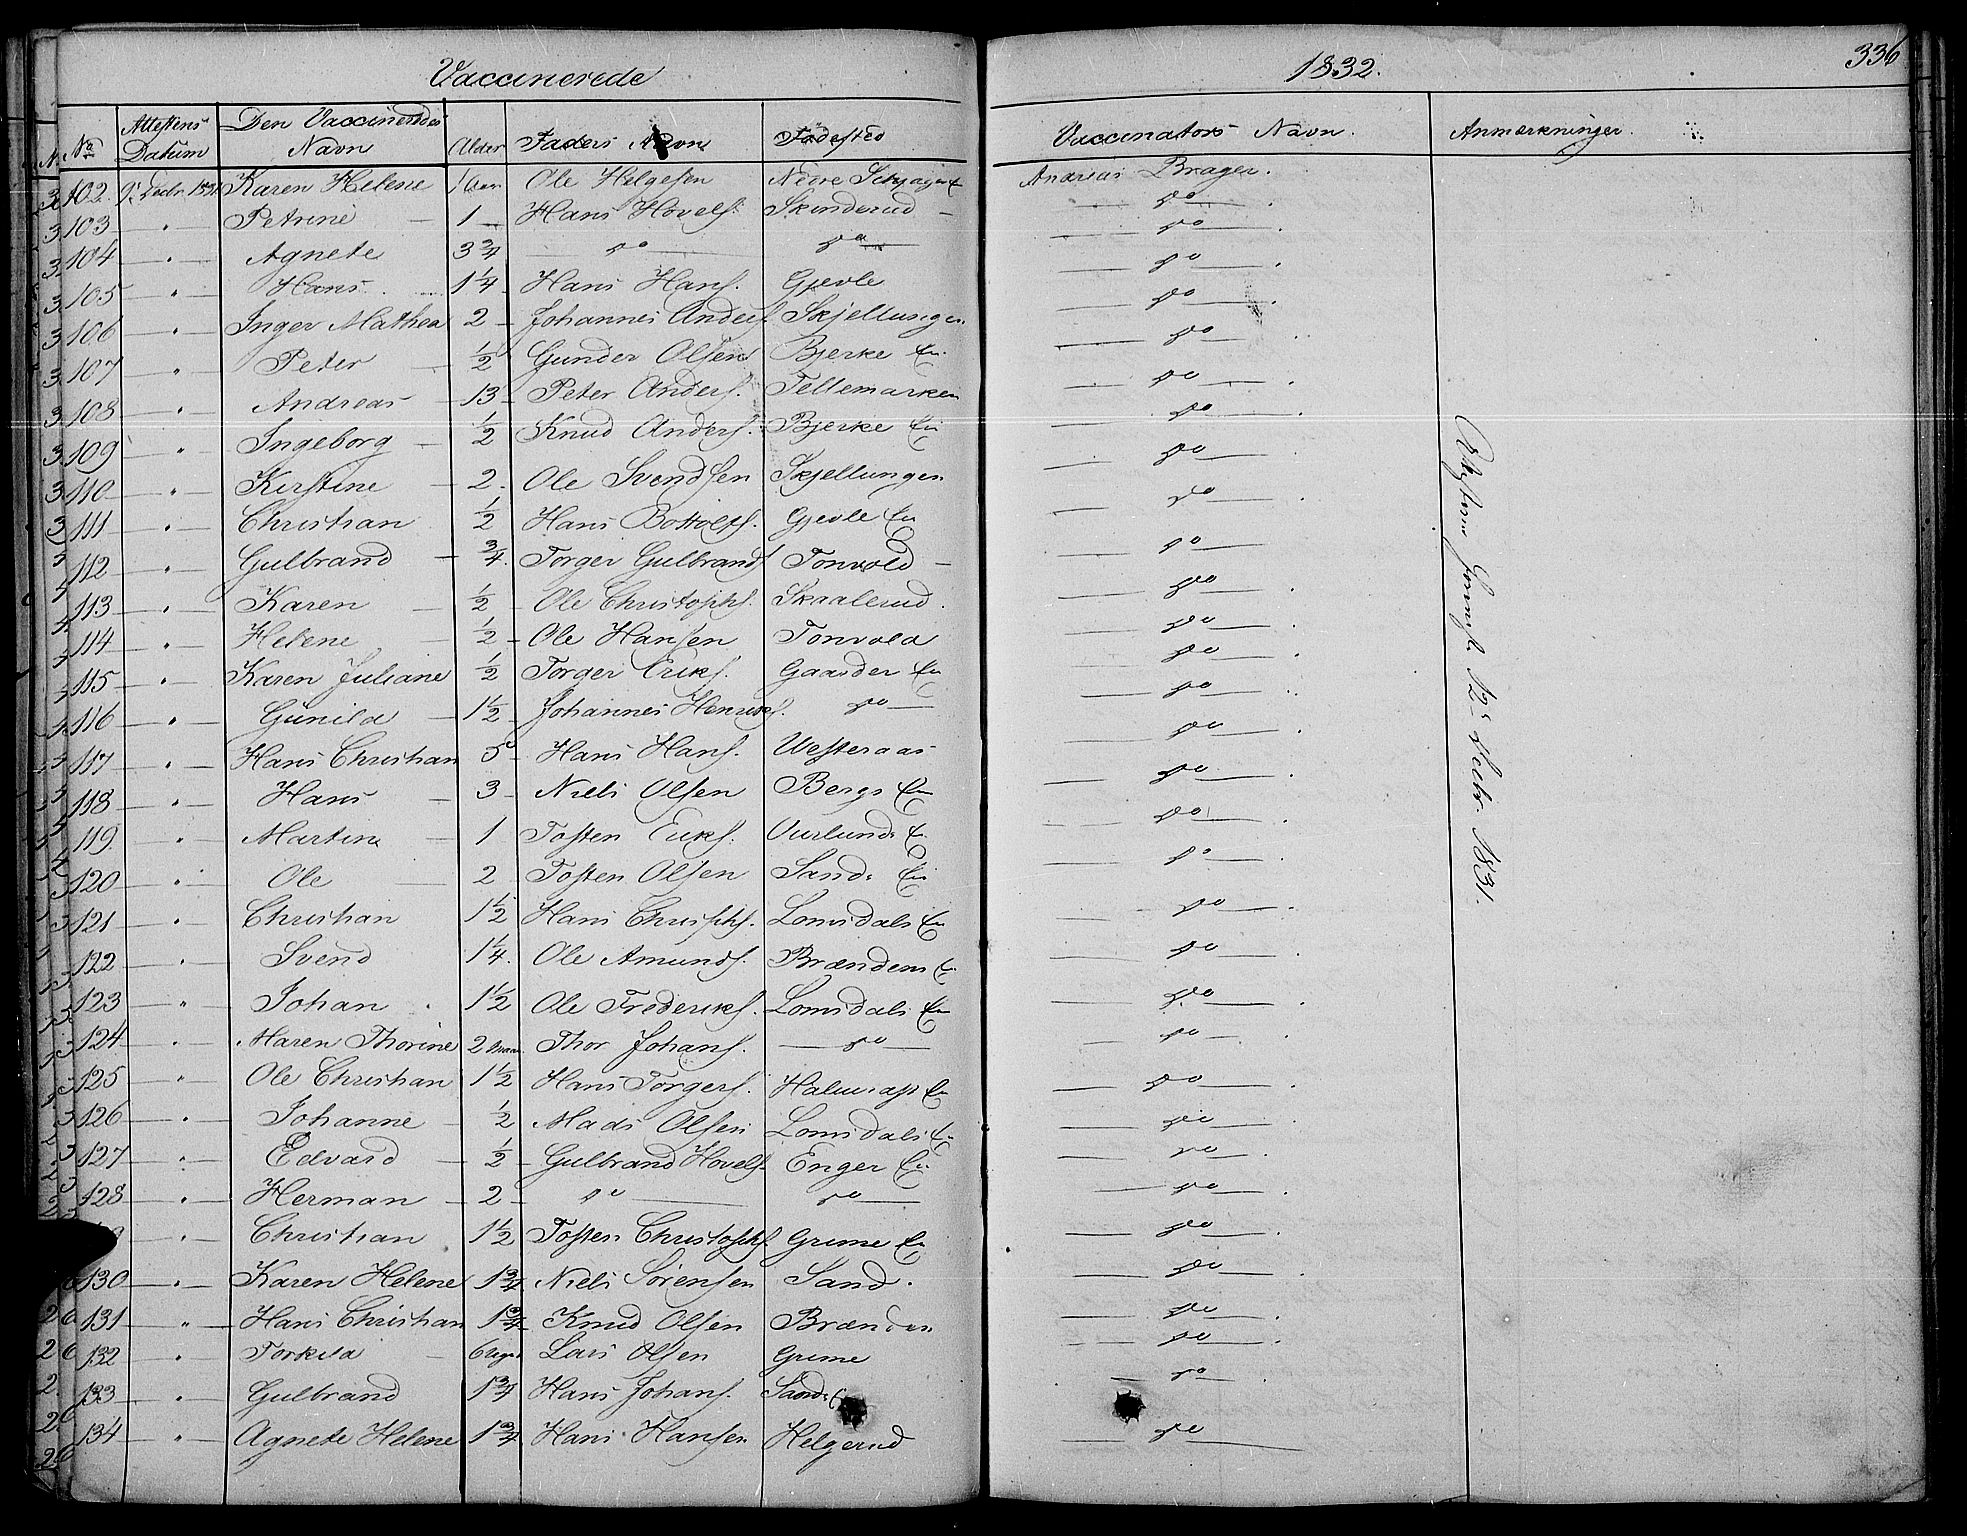 Vaccinerede
1832.
336
No Attestens Datum Den Vaccineredes Navn Alder Faders Navn Fødested Vaccinators Navn. Anmærkninger.
102. Karen Helene 1 Aar Ole Helgesen Nedre Andreas Brager.
103 " Petrine 1 Hans Hovels. Skinderud do
104 " Agnete 3 3/4 do do do
105 " Hans 1 1/4 Hans Hans. Gjevle do
106 " Inger Mathea 2 Johannes Anders. Skjellungen do
107 " Peder 1/2 Gunder Olsen Bjerke Ei. do
108 " Andreas 13 Peter Anders. Tellemarken do
109 " Ingeborg 1/2 Knud Anders. Bjerke Ei do
110 " Kirstine 2. Ole Svendsen Skjellungen do
111 " Christian 1/2 Hans Bottolfs. Gjevle Ei do
112 " Gulbrand 3/4. Torger Gulbrands. Tonvold do
113 " Karen 1/2 Ole Christophs. Skaalerud. do
114 " Helene 1/2 Ole Hansen Tonvold do
115 " Karen Juliane 1/2 Torger Eriks. Gaarder Ei do
116 " Gunild 1 1/2 Johannes Henriks. do do
117 " Hans Christian 5 Hans Hans. Westeraas do
118 " Hans 3 Niels Olsen Bergs Ei do
119 " Martin 1 Tosten Eriks. Ei do
120 " Ole 2 Tosten Olsen Sands Ei do
121 " Christian 1 1/2 Hans Christphs. Lomsdals Ei do
122 " Svend 1 1/4. Ole Amunds. Brændens Ei do
123 " Johan 1 1/2 Ole Frederiks. Lomsdals Ei do
124 " Maren Thorine 2 Maan. Thor Johans. do do
125 " Ole Christian 1 1/2 Hans Torgers. Ei do
126 " Johanne 1/2 Mads Olsen Lomsdals Ei do
127 " Edvard 1/2 Gulbrand Hovels. Enger Ei do
128 " Herman 2 do do do
" Christian 1 1/2 Tosten Christophs. Grime Ei do
130 " Karen Helene 1 3/4 Niels Sørensen Sand. do
131 " Hans Christian 1 3/4 Knud Olsen Brænden do
132 " Torkild Lars Olsen Grime do
133 " Gulbrand 1 3/4 Hans Johans. Sands do
134 " Agnete Helene 1 3/4 Hans Hansen Helgerud do
1831.